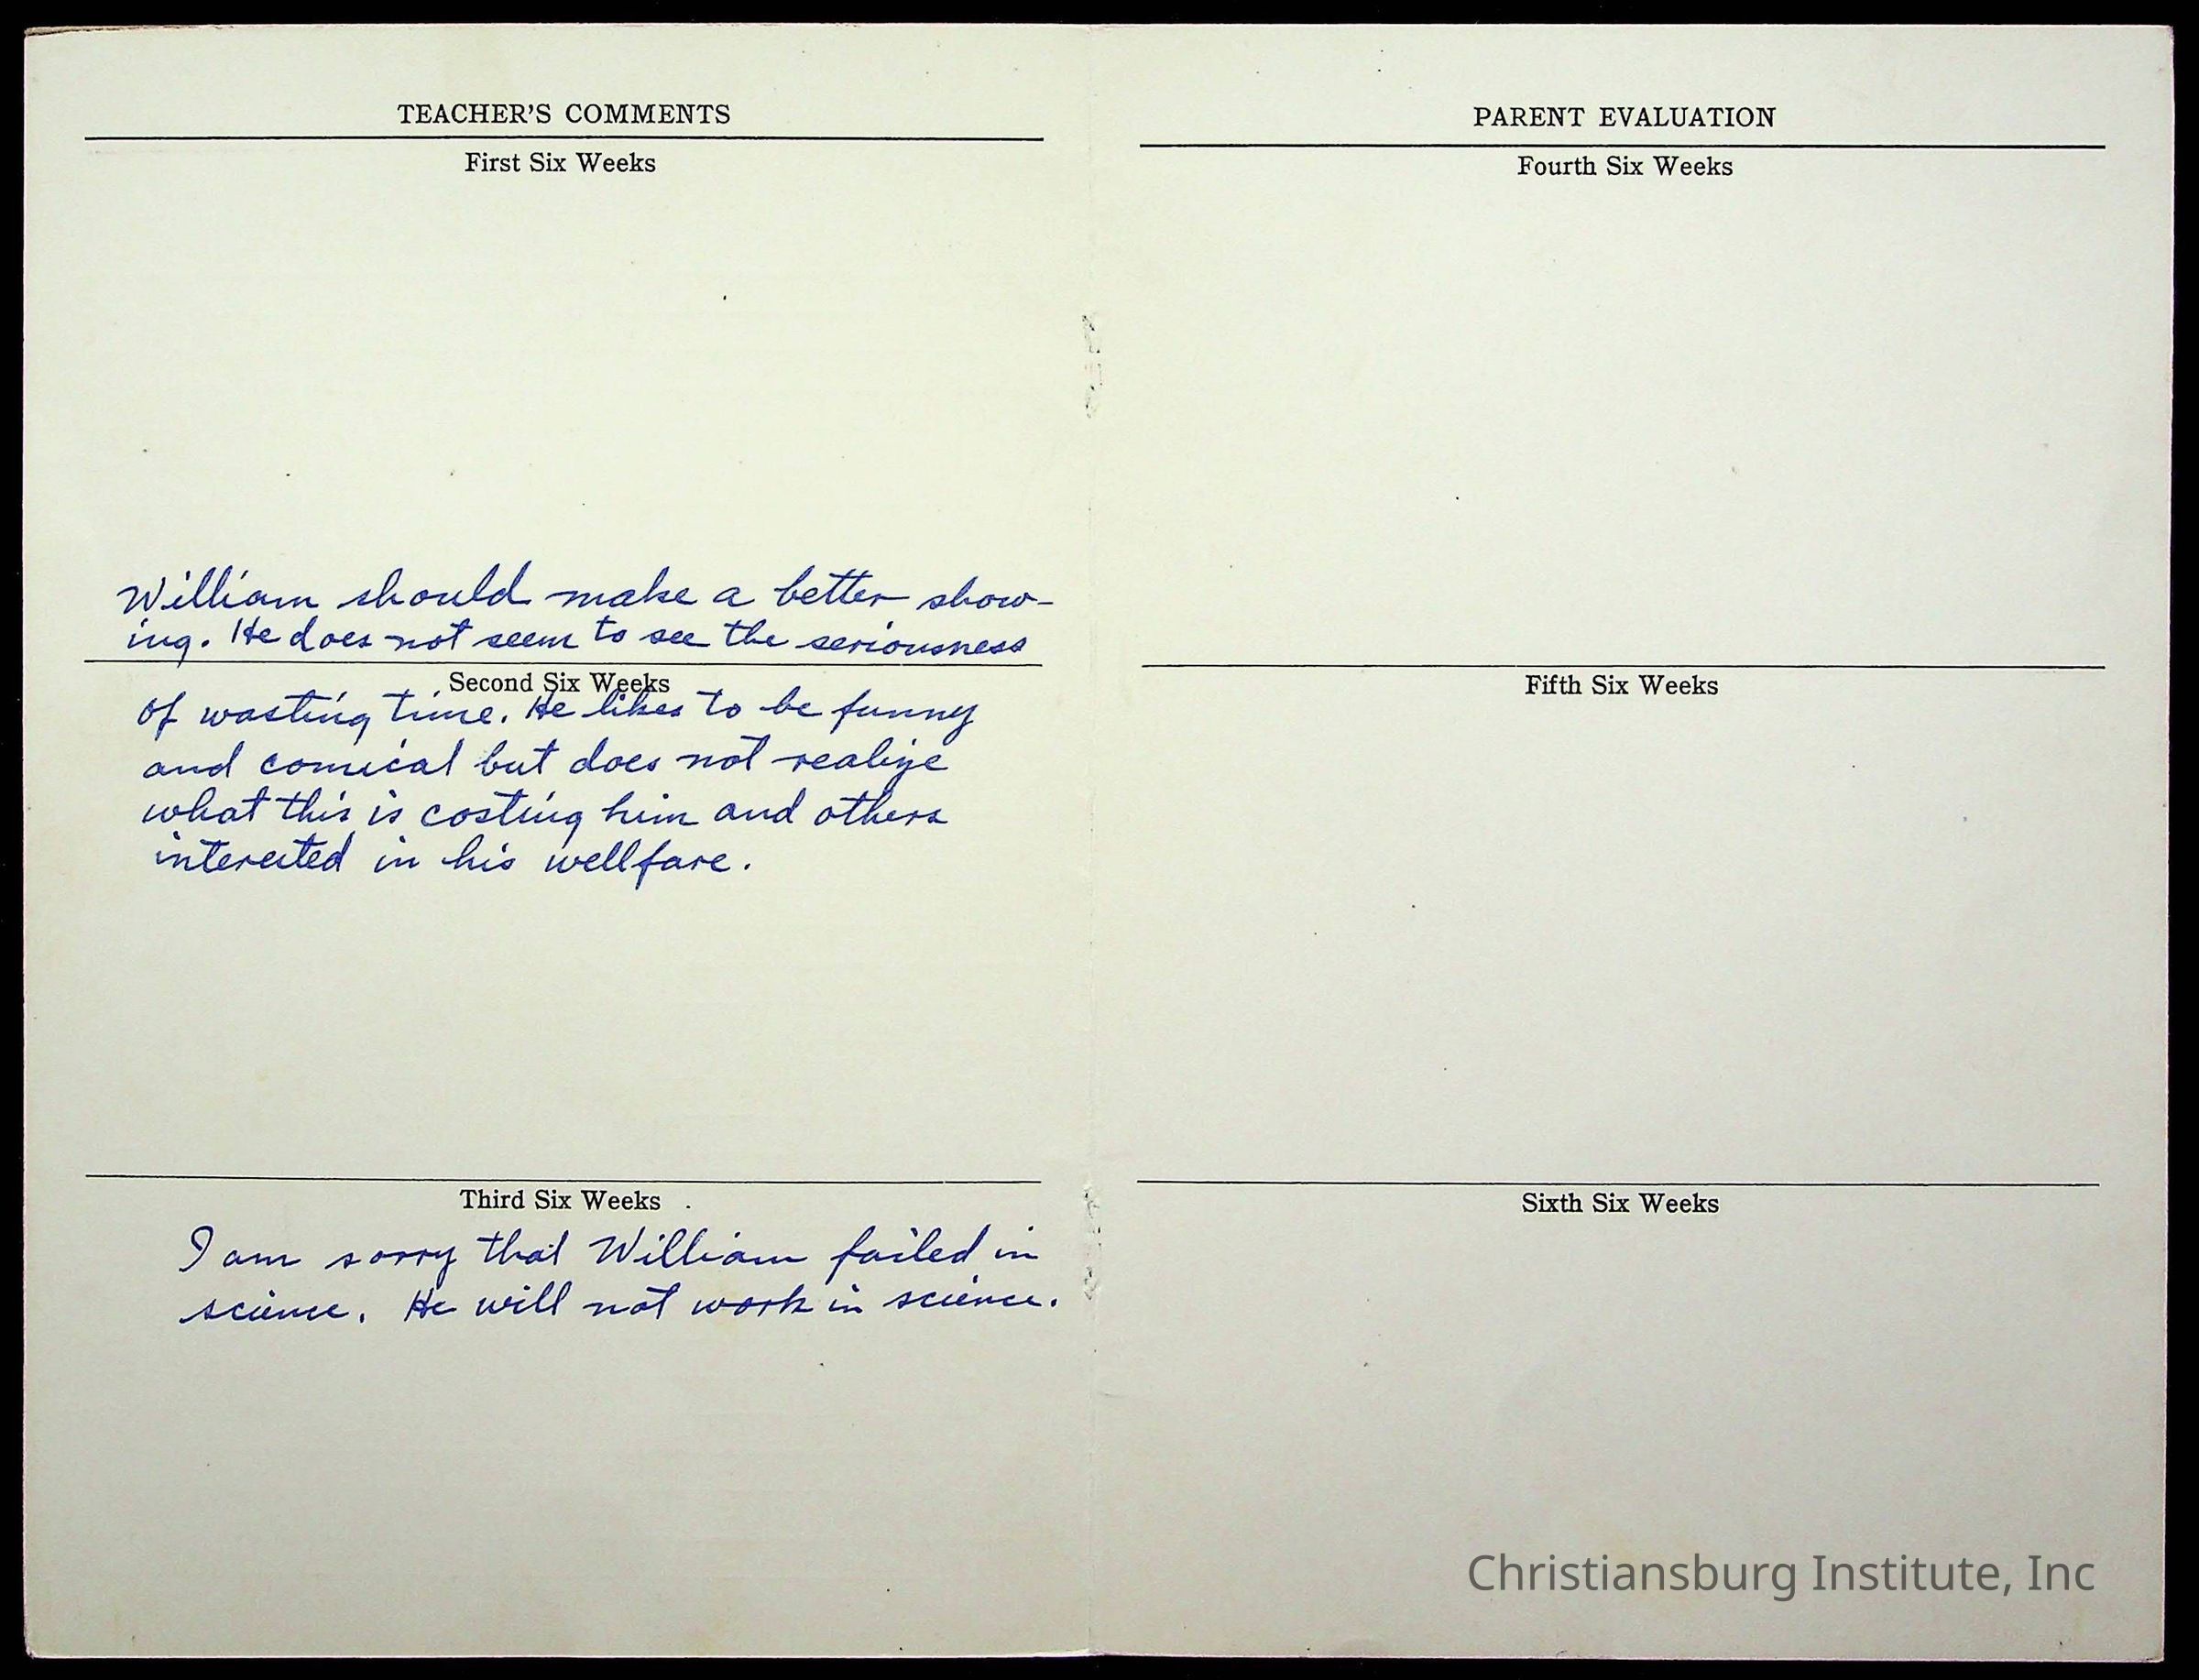 TEACHER'S COMMENTS
First Six Weeks
William should make a better show-
ing. He does not seem to see the seriousness
Second Six Weeks
of wasting time. He likes to be funny
and comical but does not realize
what this is costing him and others
interested in his wellfare.
Third Six Weeks
I am sorry that William failed in
science. He will not work in science.
PARENT EVALUATION
Fourth Six Weeks
Fifth Six Weeks
Sixth Six Weeks
Christiansburg Institute, Inc